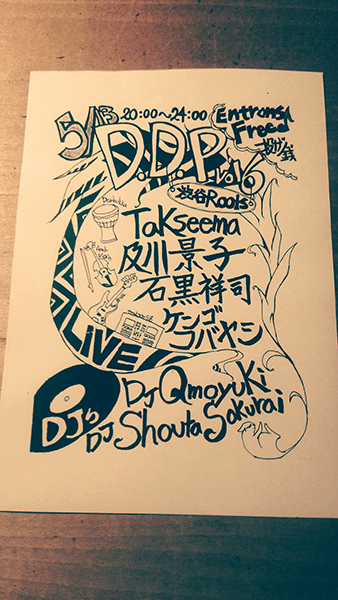 5/13 20:00~24:00
Entrans Free!
投げ銭
D.D.P. Vol.6
渋谷Roots
Takseema
及川景子
石黒祥司
ケンゴ
コバヤシ
LiVE
DJ's
DJ Qmoyuki
DJ Shouta Sakurai